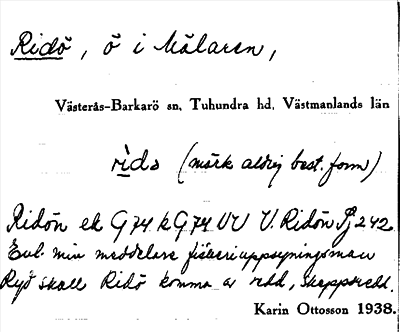 Ridö, ö i Mälaren,
Västerås-Barkarö sn, Tuhundra hd, Västmanlands län
rids (märk aldrig best. form)
Ridön ek G 74 k G 74 UV V. Ridön Fj 242
Enl. min meddelare fiskeriuppsyningsman
Ryd skall Ridö komma av redd, skeppsredd.
Karin Ottosson 1938.